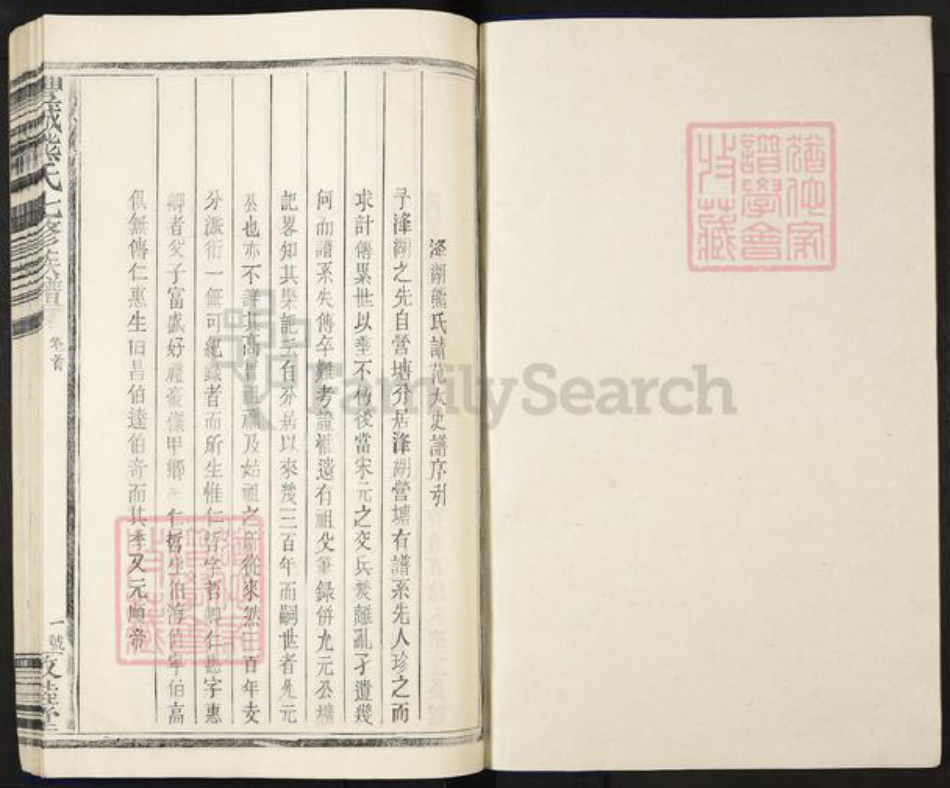 猶他家
譜學會
收藏
洚湖熊氏請范太史譜序引
予洚湖之先自營塘分居洚湖營塘有譜系先人珍之而
求計傳累世以來不朽後當宋元之交兵燹離亂孑遺幾
何而譜系失傳卒難考證惟遺有祖父筆錄併允元公壙
記畧知其槩記云自分居以來幾三百年而嗣世者允元
公也亦不詳其高曾祖禰及始祖之所從來然三百年支
分派衍一無可紀錄者而所生惟仁哲字哲卿仁惠字惠
卿者父子富盛好禮豪傑甲鄉 仁哲生伯海伯寧伯高
俱無傳仁惠生伯昌伯達伯奇而其季又元順帝
豐城熊氏七修族譜
卷首
一號
文陸堂
FamilySearch